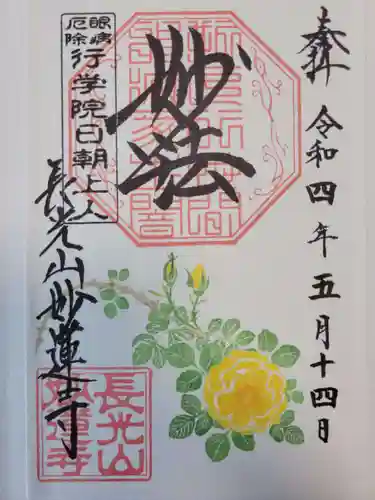 奉拝
令和四年五月十四日
妙法
眼病
厄除
行学院日朝上人
長光山妙蓮寺
長光山
妙蓮寺